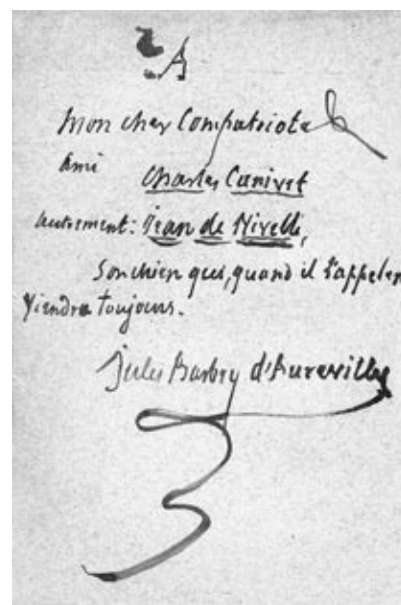 A
mon cher Compatriote &
Ami
Charles Canivet
autrement: Jean de Nivelle,
Son chien qui, quand il l'appelera
Viendra toujours.
Jules Barbey d'Aurevilly